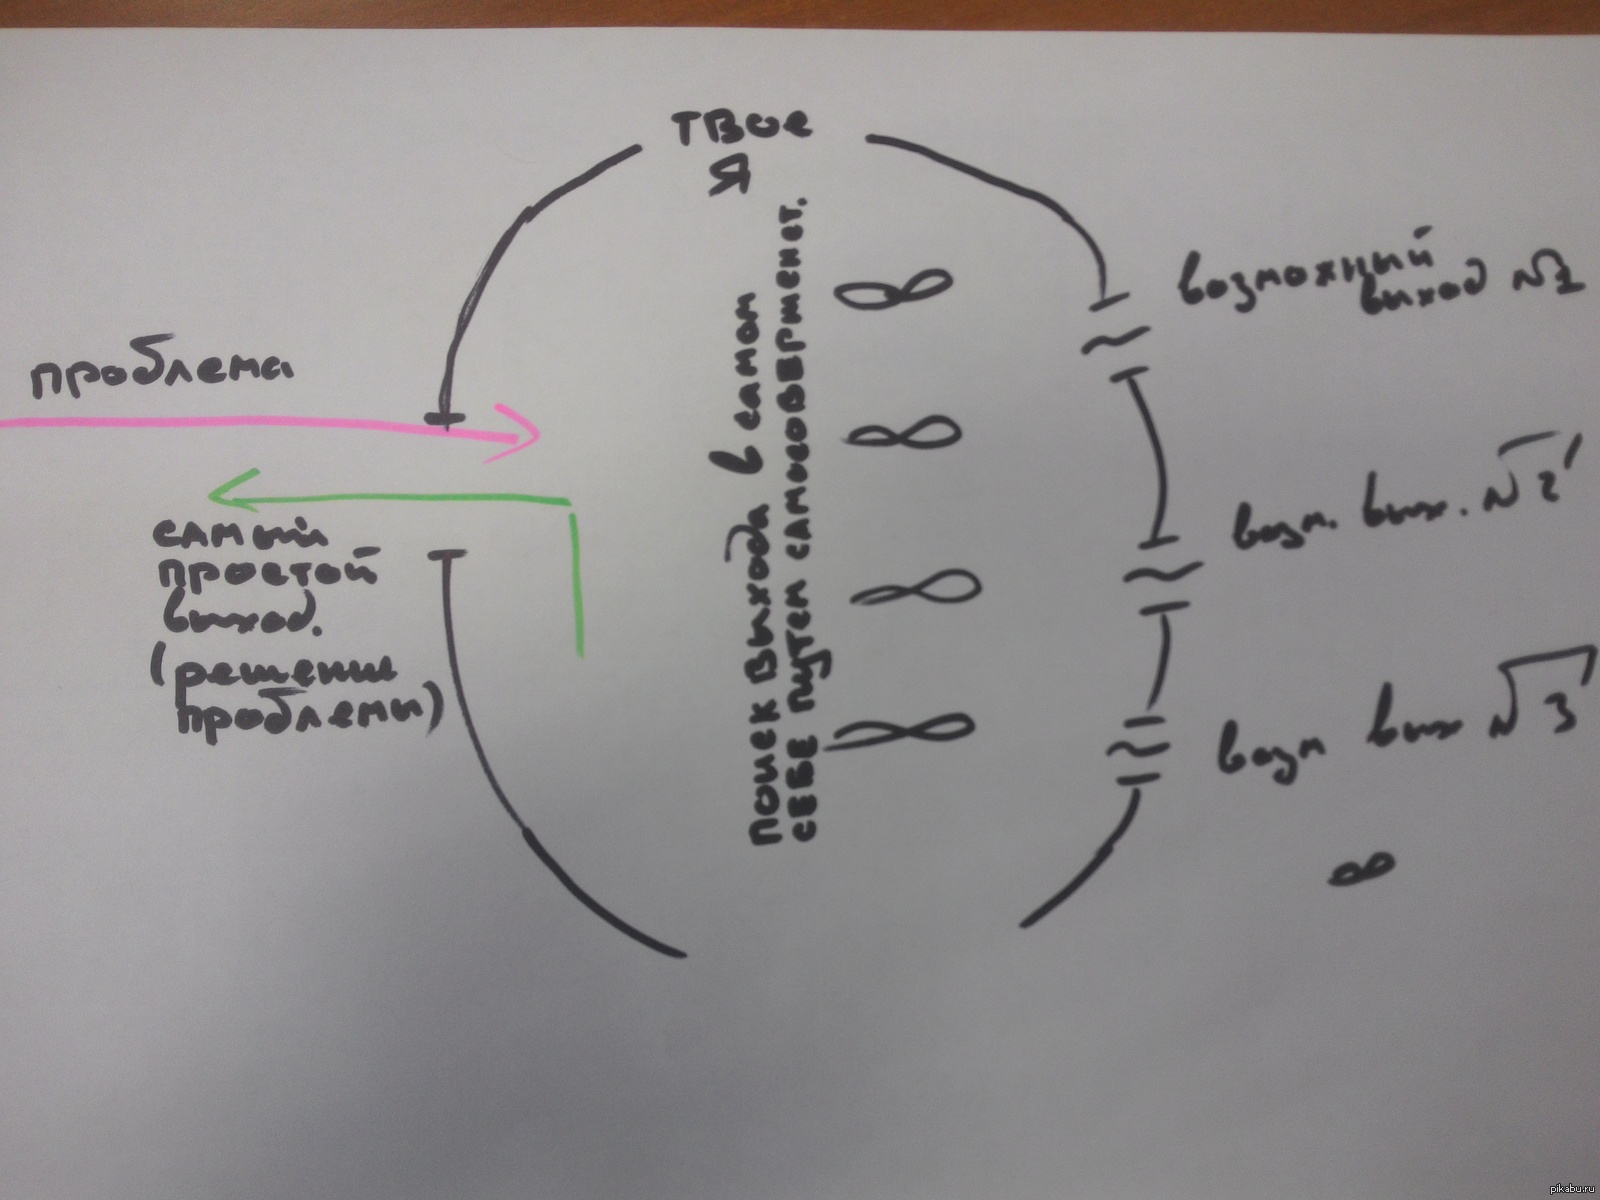 твое
Я
проблема
самый
простой
выход.
(решение
проблемы)
поиск выхода в самом
себе путем самосовершенст.
возможный
выход №1
возм. вых. №2
возм вых №3
∞
pikabu.ru